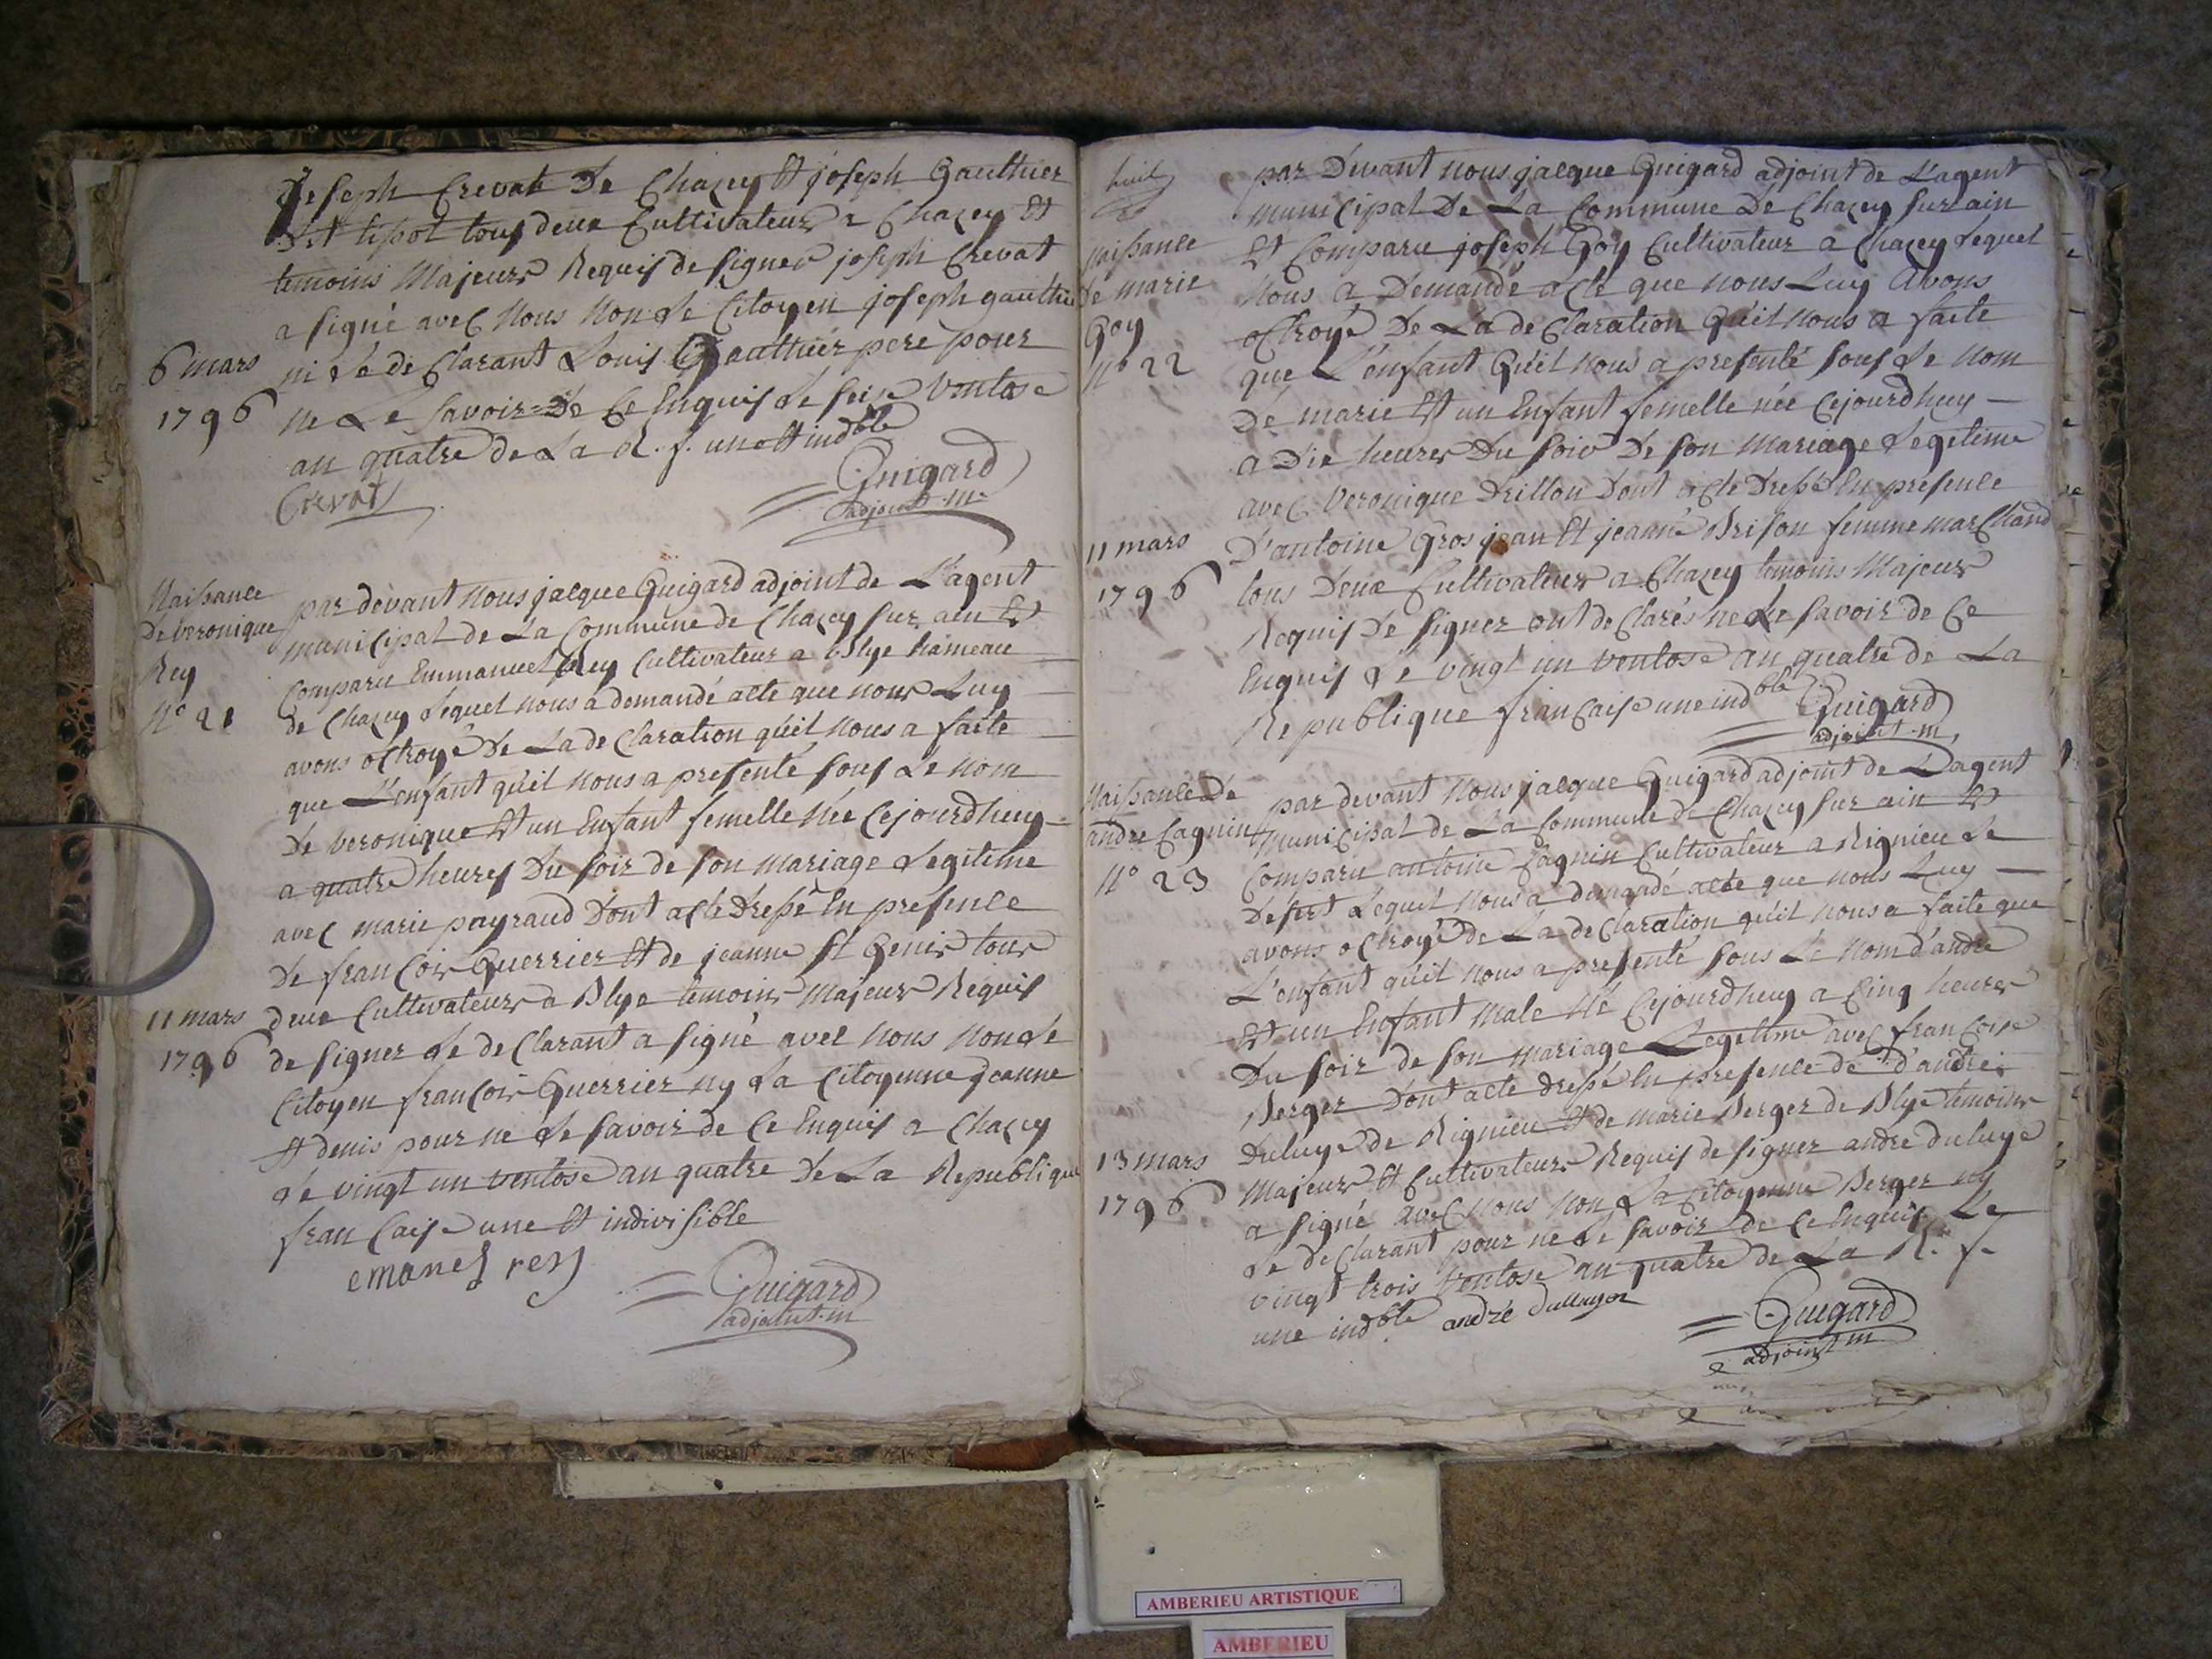 joseph Crevat De Chazey Et joseph Gauthier
dit tipot tous deux Cultivateurs a Chazey Et
temoins Majeurs Requis de signer joseph Crevat
a signé avec Nous Non Le Citoyen joseph gauthier
6 mars
ni Le de Clarant Louis Gauthier pere pour
1796
Ne Le savoir De Ce Enquis Le seise Ventose
an quatre de La R. f. une et indble
Crevat
Guigard
adjoint m.
Naissance
De Veronique
Rey
N° 21
par devant Nous jacque Guigard adjoint de L'agent
municipal de La Commune de Chazey sur ain Et
Comparu Emmanuel Rey Cultivateur a Blye hameau
de Chazey Lequel Nous a demandé acte que nous Luy
avons octroyé De La de Claration qu'il Nous a faite
que L'enfant qu'il Nous a presenté sous Le nom
De Veronique Et un Enfant femelle Née Cejourdhuy
a quatre heures Du soir de son mariage Legitime
avec marie payraud Dont acte Dressé En presence
De francois Guerrier Et de jeanne St Genis tous
deux Cultivateurs a Blye temoins Majeurs Requis
11 mars
1796
de signer Le de Clarant a signé avec Nous Non Le
Citoyen francois Guerrier ny La Citoyenne jeanne
St denis pour ne Le savoir de Ce Enquis a Chazey
Le vingt un ventose an quatre De La Republique
francaise une Et indivisible
emanel rey
Guigard
adjoint m
huit
naissance
de marie
Goy
N° 22
par Devant nous jacque Guigard adjoint de L'agent
municipal De La Commune De Chazey sur ain
Et Comparu joseph Goy Cultivateur a Chazey Lequel
Nous a Demandé acte que nous Luy Avons
octroyé De La de Claration Qu'il Nous a faite
que L'enfant Qu'il Nous a presenté sous Le Nom
De marie Et un Enfant femelle née Cejourdhuy
a Dix heures Du soir De son Mariage Legitime
avec Veronique Drillon Dont acte Dressé En presence
11 mars
1796
D'antoine Gros jean Et jeanne Brison femme marchand
tous Deux Cultivateurs a Chazey temoins Majeurs
Requis De signer ont de Clarés ne Le savoir de Ce
Enquis Le vingt un ventose an quatre de La
Republique francaise une indble
Guigard
adjoint m,
Naissance De
andre Cagnin
N° 23
par devant Nous jacque Guigard adjoint de L'agent
municipal de La Commune de Chazey sur ain Et
Comparu antoine Cagnin Cultivateur a Rignieu Le
Desert Lequel Nous a demandé acte que nous Luy
avons octroyé de La de Claration qu'il nous a faite que
L'enfant qu'il nous a presenté sous Le Nom d'andre
Et un Enfant Male Né Cejourdhuy a Cinq heures
Du soir de son mariage Legetime avec francoise
Berger Dont acte dressé En presence de d'andre
Duluye de Rignieu Et de marie Berger de Blye temoins
13 mars
1796
Majeurs Et Cultivateurs Requis de signer andre duluye
a signé avec nous Non La Citoyenne Berger ny
Le de Clarant pour ne Le savoir de Ce Enquis Le
vingt trois Ventose an quatre de La R. f.
une indble
andré
Guigard
adjoint m
AMBERIEU ARTISTIQUE
AMBERIEU